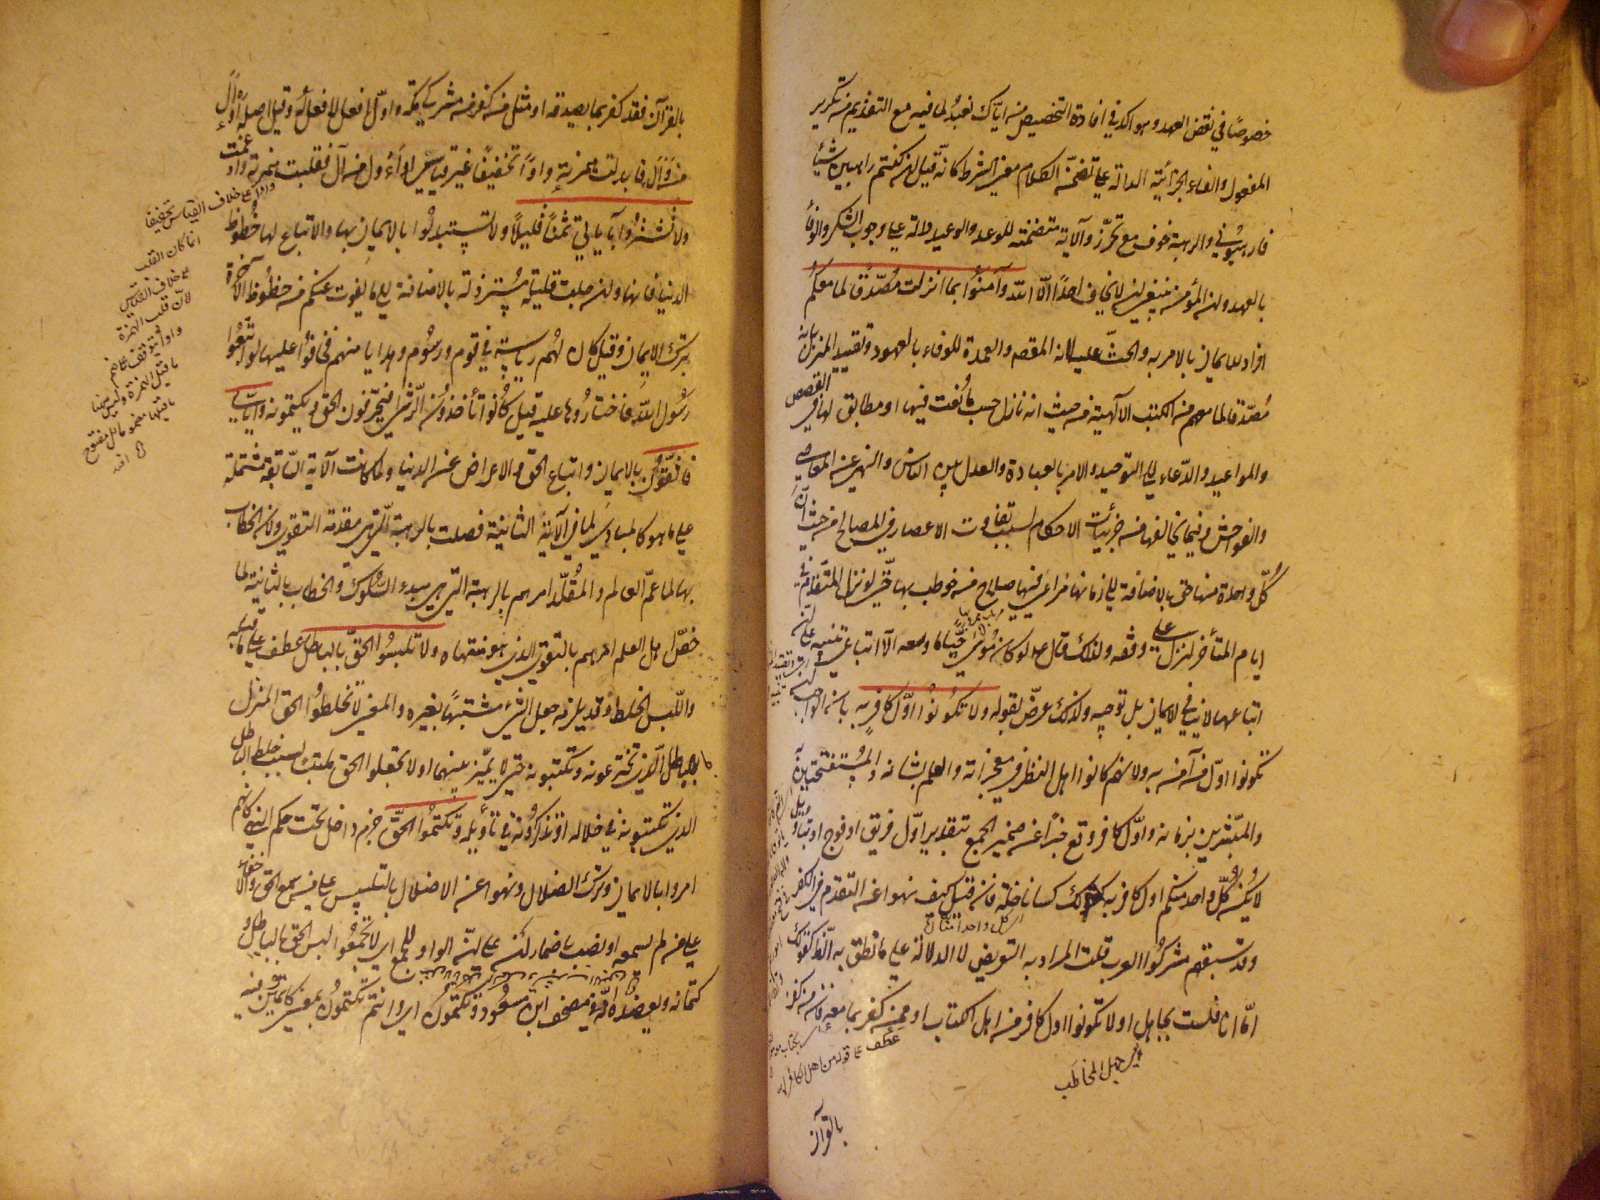 خصوصًا في نقض العهد وهو اكد في افادة التخصيص من اياك نعبد لما فيه مع التقديم من تكرير
المفعول والفاء الجزائية الدالة على تضمن الكلام معنى الشرط كانه قيل ان كنتم راهبين شيئا
فارهبون والرهبة خوف مع تحرز والآية متضمنة للوعد والوعيد دالة على وجوب الشكر والوفاء
بالعهد وان المؤمن ينبغي ان لا يخاف احدًا الا الله وآمنوا بما انزلت مصدقا لما معكم
افراد للايمان بالامر به والحث عليه لانه المقصود والعمدة للوفاء بالعهود وتقييد المنزل بانه
مصدق لما معهم من الكتب الالهية من حيث انه نازل حسب ما نعت فيها او مطابق لها في القصص
والمواعيد والدعاء الى التوحيد والامر بالعبادة والعدل بين الناس والنهي عن المعاصي
والفواحش وفيما يخالفها من جزئيات الاحكام بسبب تفاوت الاعصار في المصالح من حيث ان
كل واحدة منها حق بالاضافة الى زمانها مراعى فيها صلاح من خوطب بها حتى لو نزل المتقدم في
ايام المتأخر لنزل على وفقه ولذلك قال عم لو كان موسى حيا لما وسعه الا اتباعي تنبيه على ان
اتباعها لا ينافي الايمان بل توجبه ولذلك عرض بقوله ولا تكونوا اول كافر به بان الواجب ان
تكونوا اول من آمن به ولانهم كانوا اهل النظر في معجزاته والعلم بشانه والمستفتحين به
والمبشرين بزمانه واول كافر وقع خبرًا عن ضمير الجمع بتقدير اول فريق او فوج او بتأويل
لا يكن كل واحد منكم اول كافر به كقولك كسانا حلة فان قيل كيف نهوا عن التقدم في الكفر
وقد سبقهم مشركوا العرب قلت المراد به التعريض لا الدلالة على ما نطق به الظاهر كقولك
اما انا فلست بجاهل او ولا تكونوا اول كافر من اهل الكتاب او ممن كفر بما معه فان من كفر
بالقرآن
بالقرآن فقد كفر بما يصدقه او مثل من كفر من مشركي مكة واول افعل لا فعل له وقيل اصله اوأل
من وأل فابدلت همزته واوًا تخفيفًا غير قياسي او أأول من آل فقلبت همزته واوًا وادغمت
ولا تشتروا بآياتي ثمنًا قليلًا ولا تستبدلوا بالايمان بها والاتباع لها حظوظ
الدنيا فانها وان جلت قليلة مسترذلة بالاضافة الى ما يفوت عنكم من حظوظ الآخرة
بترك الايمان وقيل كان لهم رياسة في قومهم ورسوم وهدايا منهم فخافوا عليها لو اتبعوا
رسول الله فاختاروها عليه وقيل كانوا ياخذون الرشى فيحرفون الحق ويكتمونه واياي
فاتقون بالايمان واتباع الحق والاعراض عن الدنيا ولما كانت الآية السابقة مشتملة
على ما هو كالمبادي لما في الآية الثانية فصلت بالرهبة التي هي مقدمة التقوى ولان الخطاب
بها لما عم العالم والمقلد امرهم بالرهبة التي هي مبدء السلوك والخطاب بالثانية لما
خص اهل العلم امرهم بالتقوى الذي هو منتهاه ولا تلبسوا الحق بالباطل عطف على ما قبله
واللبس الخلط وقد يلزمه جعل الشيء مشتبهًا بغيره والمعنى لا تخلطوا الحق المنزل
بالباطل الذي تخترعونه وتكتبونه حتى لا يميز بينهما او لا تجعلوا الحق ملتبسا بسبب خلط الباطل
الذي تكتبونه في خلاله او تذكرونه في تأويله وتكتموا الحق جزم داخل تحت حكم النهي كانهم
امروا بالايمان وترك الضلال ونهوا عن الاضلال بالتلبيس على من سمع الحق والاخفاء
على من لم يسمعه او نصب باضمار ان على ان الواو للجمع اي لا تجمعوا لبس الحق بالباطل و
كتمانه ويعضده انه في مصحف ابن مسعود وتكتمون اي وانتم تكتمون بمعنى كاتمين وفيه